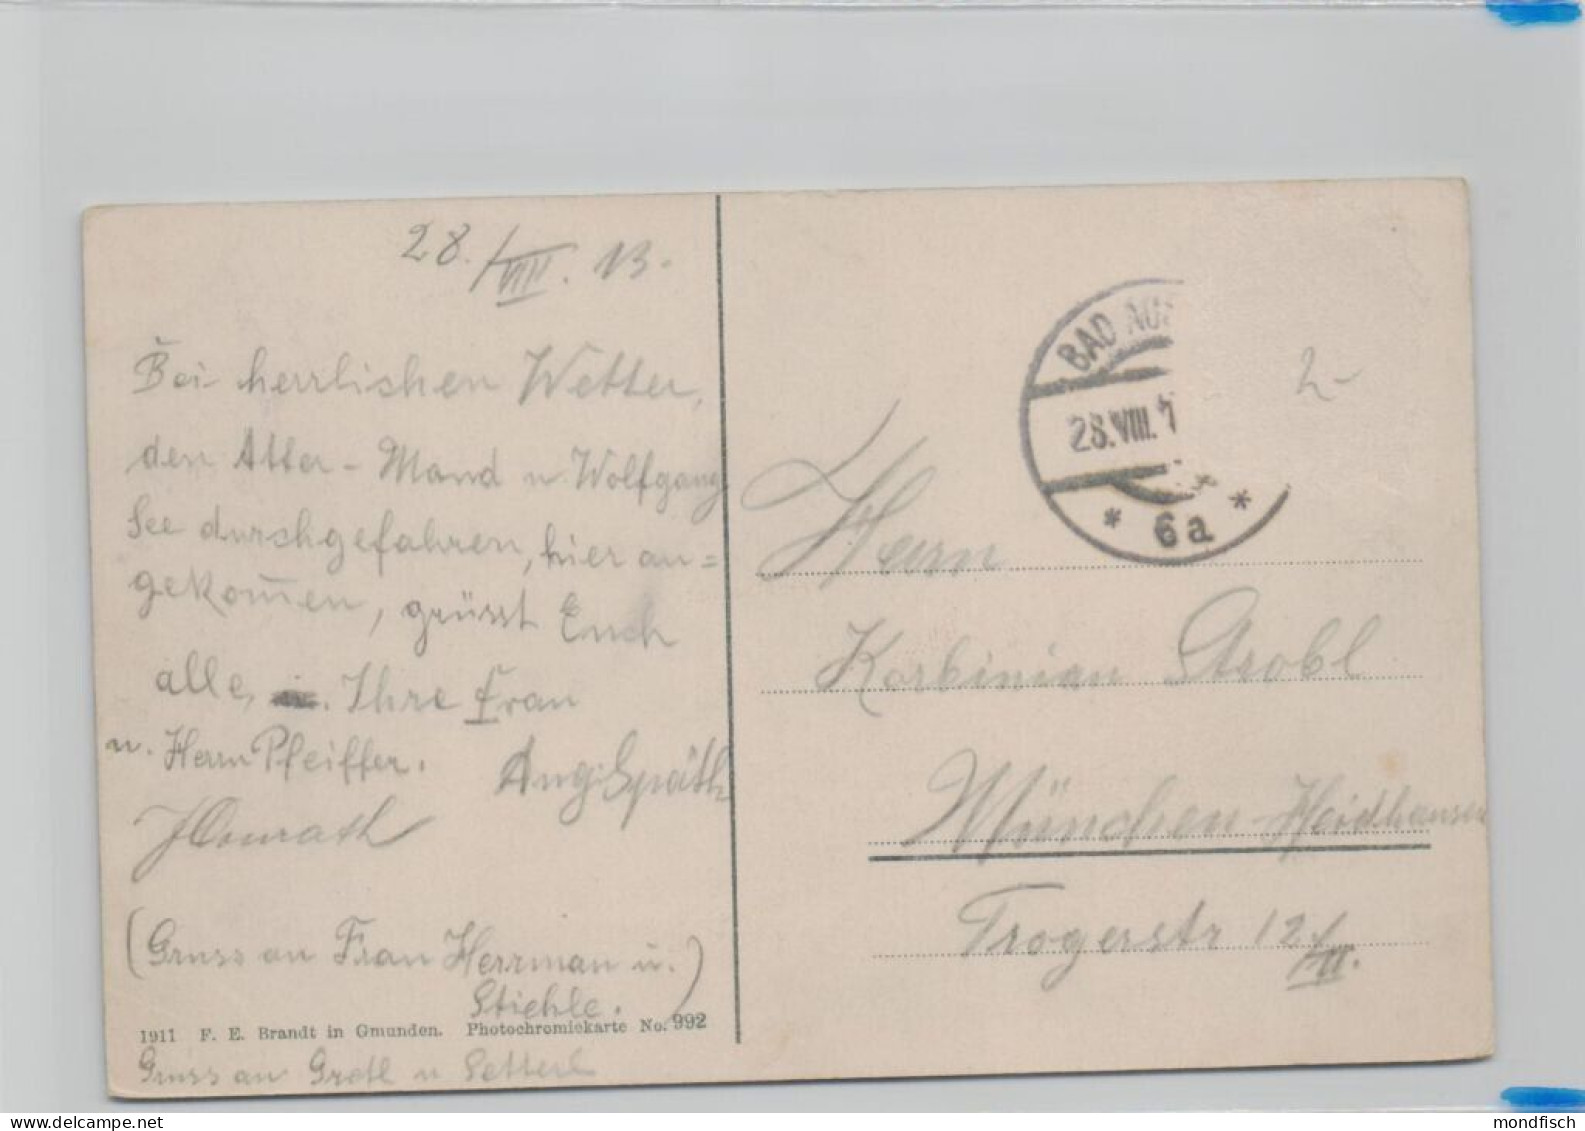 28./VIII. 13.
Bei herrlichen Wetter,
den Atter - Mond u. Wolfgang
See durchgefahren, hier an=
gekom̄en, grüsst Euch
alle, Ihre Frau
u. Herrn Pfeiffer.
Aug. Späth
(Gruss an Frau Herrman u.)
Stiehle.
1911 F. E. Brandt in Gmunden. Photochromiekarte No. 992
Gruss an Grotl u Setterl
BAD AUS
28.VIII.1
* 6a *
2-
Herrn
Korbinian Strobl
München-Heidhausen
Trogerstr 12/III.
delcampe.net
mondfisch